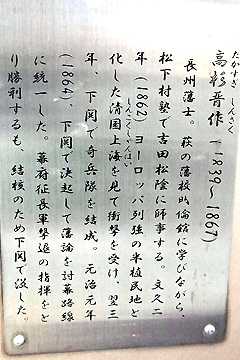 たかすぎ しんさく
高杉晋作(1839〜1867)
長州藩士。萩の藩校明倫館に学びながら、
松下村塾で吉田松陰に師事する。文久二
年(1862)ヨーロッパ列強の半植民地と
しんこくしゃんはい
化した清国上海を見て衝撃を受け、翌三
年、下関で奇兵隊を結成。元治元年
(1864)、下関で決起して藩論を討幕路線
に統一した。幕府征長軍撃退の指揮をと
り勝利するも、結核のため下関で没した